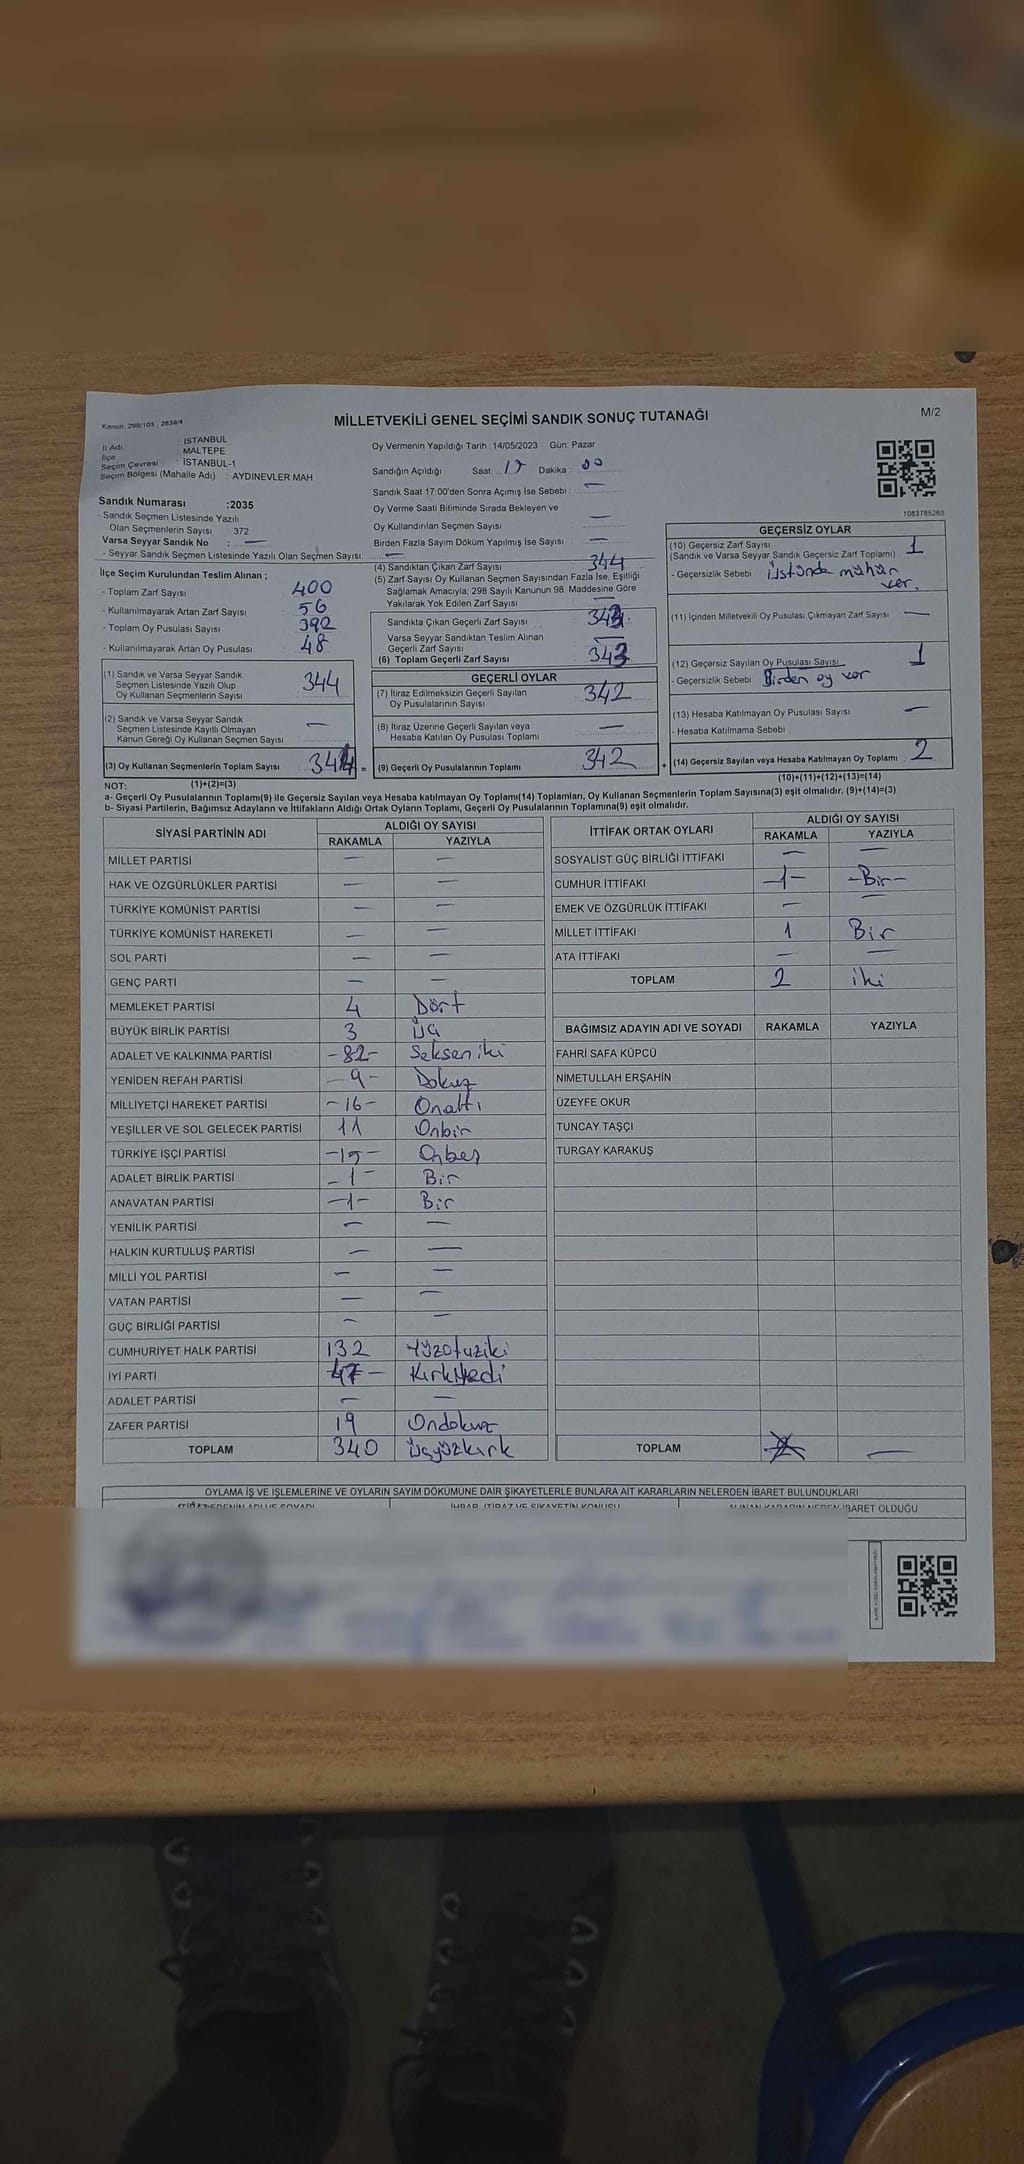 Kanun: 298/105 , 2839/4
MİLLETVEKİLİ GENEL SEÇİMİ SANDIK SONUÇ TUTANAĞI
M/2
İl Adı İSTANBUL
İlçe MALTEPE
Seçim Çevresi İSTANBUL-1
Seçim Bölgesi (Mahalle Adı) : AYDINEVLER MAH
Sandık Numarası :2035
- Sandık Seçmen Listesinde Yazılı
Olan Seçmenlerin Sayısı 372
Varsa Seyyar Sandık No : —
- Seyyar Sandık Seçmen Listesinde Yazılı Olan Seçmen Sayısı: —
İlçe Seçim Kurulundan Teslim Alınan ;
- Toplam Zarf Sayısı : 400
- Kullanılmayarak Artan Zarf Sayısı : 56
- Toplam Oy Pusulası Sayısı : 392
- Kullanılmayarak Artan Oy Pusulası : 48
(1) Sandık ve Varsa Seyyar Sandık
Seçmen Listesinde Yazılı Olup
Oy Kullanan Seçmenlerin Sayısı : 344
(2) Sandık ve Varsa Seyyar Sandık
Seçmen Listesinde Kayıtlı Olmayan
Kanun Gereği Oy Kullanan Seçmen Sayısı : —
(3) Oy Kullanan Seçmenlerin Toplam Sayısı : 344 =
Oy Vermenin Yapıldığı Tarih : 14/05/2023 Gün: Pazar
Sandığın Açıldığı Saat: 17 Dakika : 00
Sandık Saat 17:00'den Sonra Açımış İse Sebebi : —
Oy Verme Saati Bitiminde Sırada Bekleyen ve
Oy Kullandırılan Seçmen Sayısı : —
Birden Fazla Sayım Döküm Yapılmış İse Sayısı : —
(4) Sandıktan Çıkan Zarf Sayısı : 344
(5) Zarf Sayısı Oy Kullanan Seçmen Sayısından Fazla İse, Eşitliği
Sağlamak Amacıyla; 298 Sayılı Kanunun 98. Maddesine Göre
Yakılarak Yok Edilen Zarf Sayısı : —
Sandıkta Çıkan Geçerli Zarf Sayısı : 343
Varsa Seyyar Sandıktan Teslim Alınan
Geçerli Zarf Sayısı : —
(6) Toplam Geçerli Zarf Sayısı : 343
GEÇERLİ OYLAR
(7) İtiraz Edilmeksizin Geçerli Sayılan
Oy Pusulalarının Sayısı : 342
(8) İtiraz Üzerine Geçerli Sayılan veya
Hesaba Katılan Oy Pusulası Toplamı : —
(9) Geçerli Oy Pusulalarının Toplamı : 342 +
1083765269
GEÇERSİZ OYLAR
(10) Geçersiz Zarf Sayısı
(Sandık ve Varsa Seyyar Sandık Geçersiz Zarf Toplamı) : 1
- Geçersizlik Sebebi : üstünde mühür
var.
(11) İçinden Milletvekili Oy Pusulası Çıkmayan Zarf Sayısı : —
(12) Geçersiz Sayılan Oy Pusulası Sayısı : 1
- Geçersizlik Sebebi : Birden oy var
(13) Hesaba Katılmayan Oy Pusulası Sayısı : —
- Hesaba Katılmama Sebebi :
(14) Geçersiz Sayılan veya Hesaba Katılmayan Oy Toplamı : 2
NOT: (1)+(2)=(3) (10)+(11)+(12)+(13)=(14)
a- Geçerli Oy Pusulalarının Toplamı(9) ile Geçersiz Sayılan veya Hesaba katılmayan Oy Toplamı(14) Toplamları, Oy Kullanan Seçmenlerin Toplam Sayısına(3) eşit olmalıdır. (9)+(14)=(3)
b- Siyasi Partilerin, Bağımsız Adayların ve İttifakların Aldığı Ortak Oyların Toplamı, Geçerli Oy Pusulalarının Toplamına(9) eşit olmalıdır.
SİYASİ PARTİNİN ADI ALDIĞI OY SAYISI
RAKAMLA YAZIYLA
MİLLET PARTİSİ — —
HAK VE ÖZGÜRLÜKLER PARTİSİ — —
TÜRKİYE KOMÜNİST PARTİSİ — —
TÜRKİYE KOMÜNİST HAREKETİ — —
SOL PARTİ — —
GENÇ PARTİ — —
MEMLEKET PARTİSİ 4 Dört
BÜYÜK BİRLİK PARTİSİ 3 Üç
ADALET VE KALKINMA PARTİSİ -82- Seksen iki
YENİDEN REFAH PARTİSİ -9- Dokuz
MİLLİYETÇİ HAREKET PARTİSİ -16- Onaltı
YEŞİLLER VE SOL GELECEK PARTİSİ 11 Onbir
TÜRKİYE İŞÇİ PARTİSİ -15- Onbeş
ADALET BİRLİK PARTİSİ -1- Bir
ANAVATAN PARTİSİ -1- Bir
YENİLİK PARTİSİ — —
HALKIN KURTULUŞ PARTİSİ — —
MİLLİ YOL PARTİSİ — —
VATAN PARTİSİ — —
GÜÇ BİRLİĞİ PARTİSİ — —
CUMHURİYET HALK PARTİSİ 132 Yüzotuziki
İYİ PARTİ 47 — Kırkyedi
ADALET PARTİSİ — —
ZAFER PARTİSİ 19 Ondokuz
TOPLAM 340 Üçyüzkırk
İTTİFAK ORTAK OYLARI ALDIĞI OY SAYISI
RAKAMLA YAZIYLA
SOSYALİST GÜÇ BİRLİĞİ İTTİFAKI — —
CUMHUR İTTİFAKI -1- -Bir-
EMEK VE ÖZGÜRLÜK İTTİFAKI — —
MİLLET İTTİFAKI 1 Bir
ATA İTTİFAKI — —
TOPLAM 2 iki
BAĞIMSIZ ADAYIN ADI VE SOYADI RAKAMLA YAZIYLA
FAHRİ SAFA KÜPCÜ
NİMETULLAH ERŞAHİN
ÜZEYFE OKUR
TUNCAY TAŞÇI
TURGAY KARAKUŞ
TOPLAM —
OYLAMA İŞ VE İŞLEMLERİNE VE OYLARIN SAYIM DÖKÜMÜNE DAİR ŞİKAYETLERLE BUNLARA AİT KARARLARIN NELERDEN İBARET BULUNDUKLARI
İTİRAZ EDENİN ADI VE SOYADI İHBAR, İTİRAZ VE ŞİKAYETİN KONUSU ALINAN KARARIN NEDEN İBARET OLDUĞU